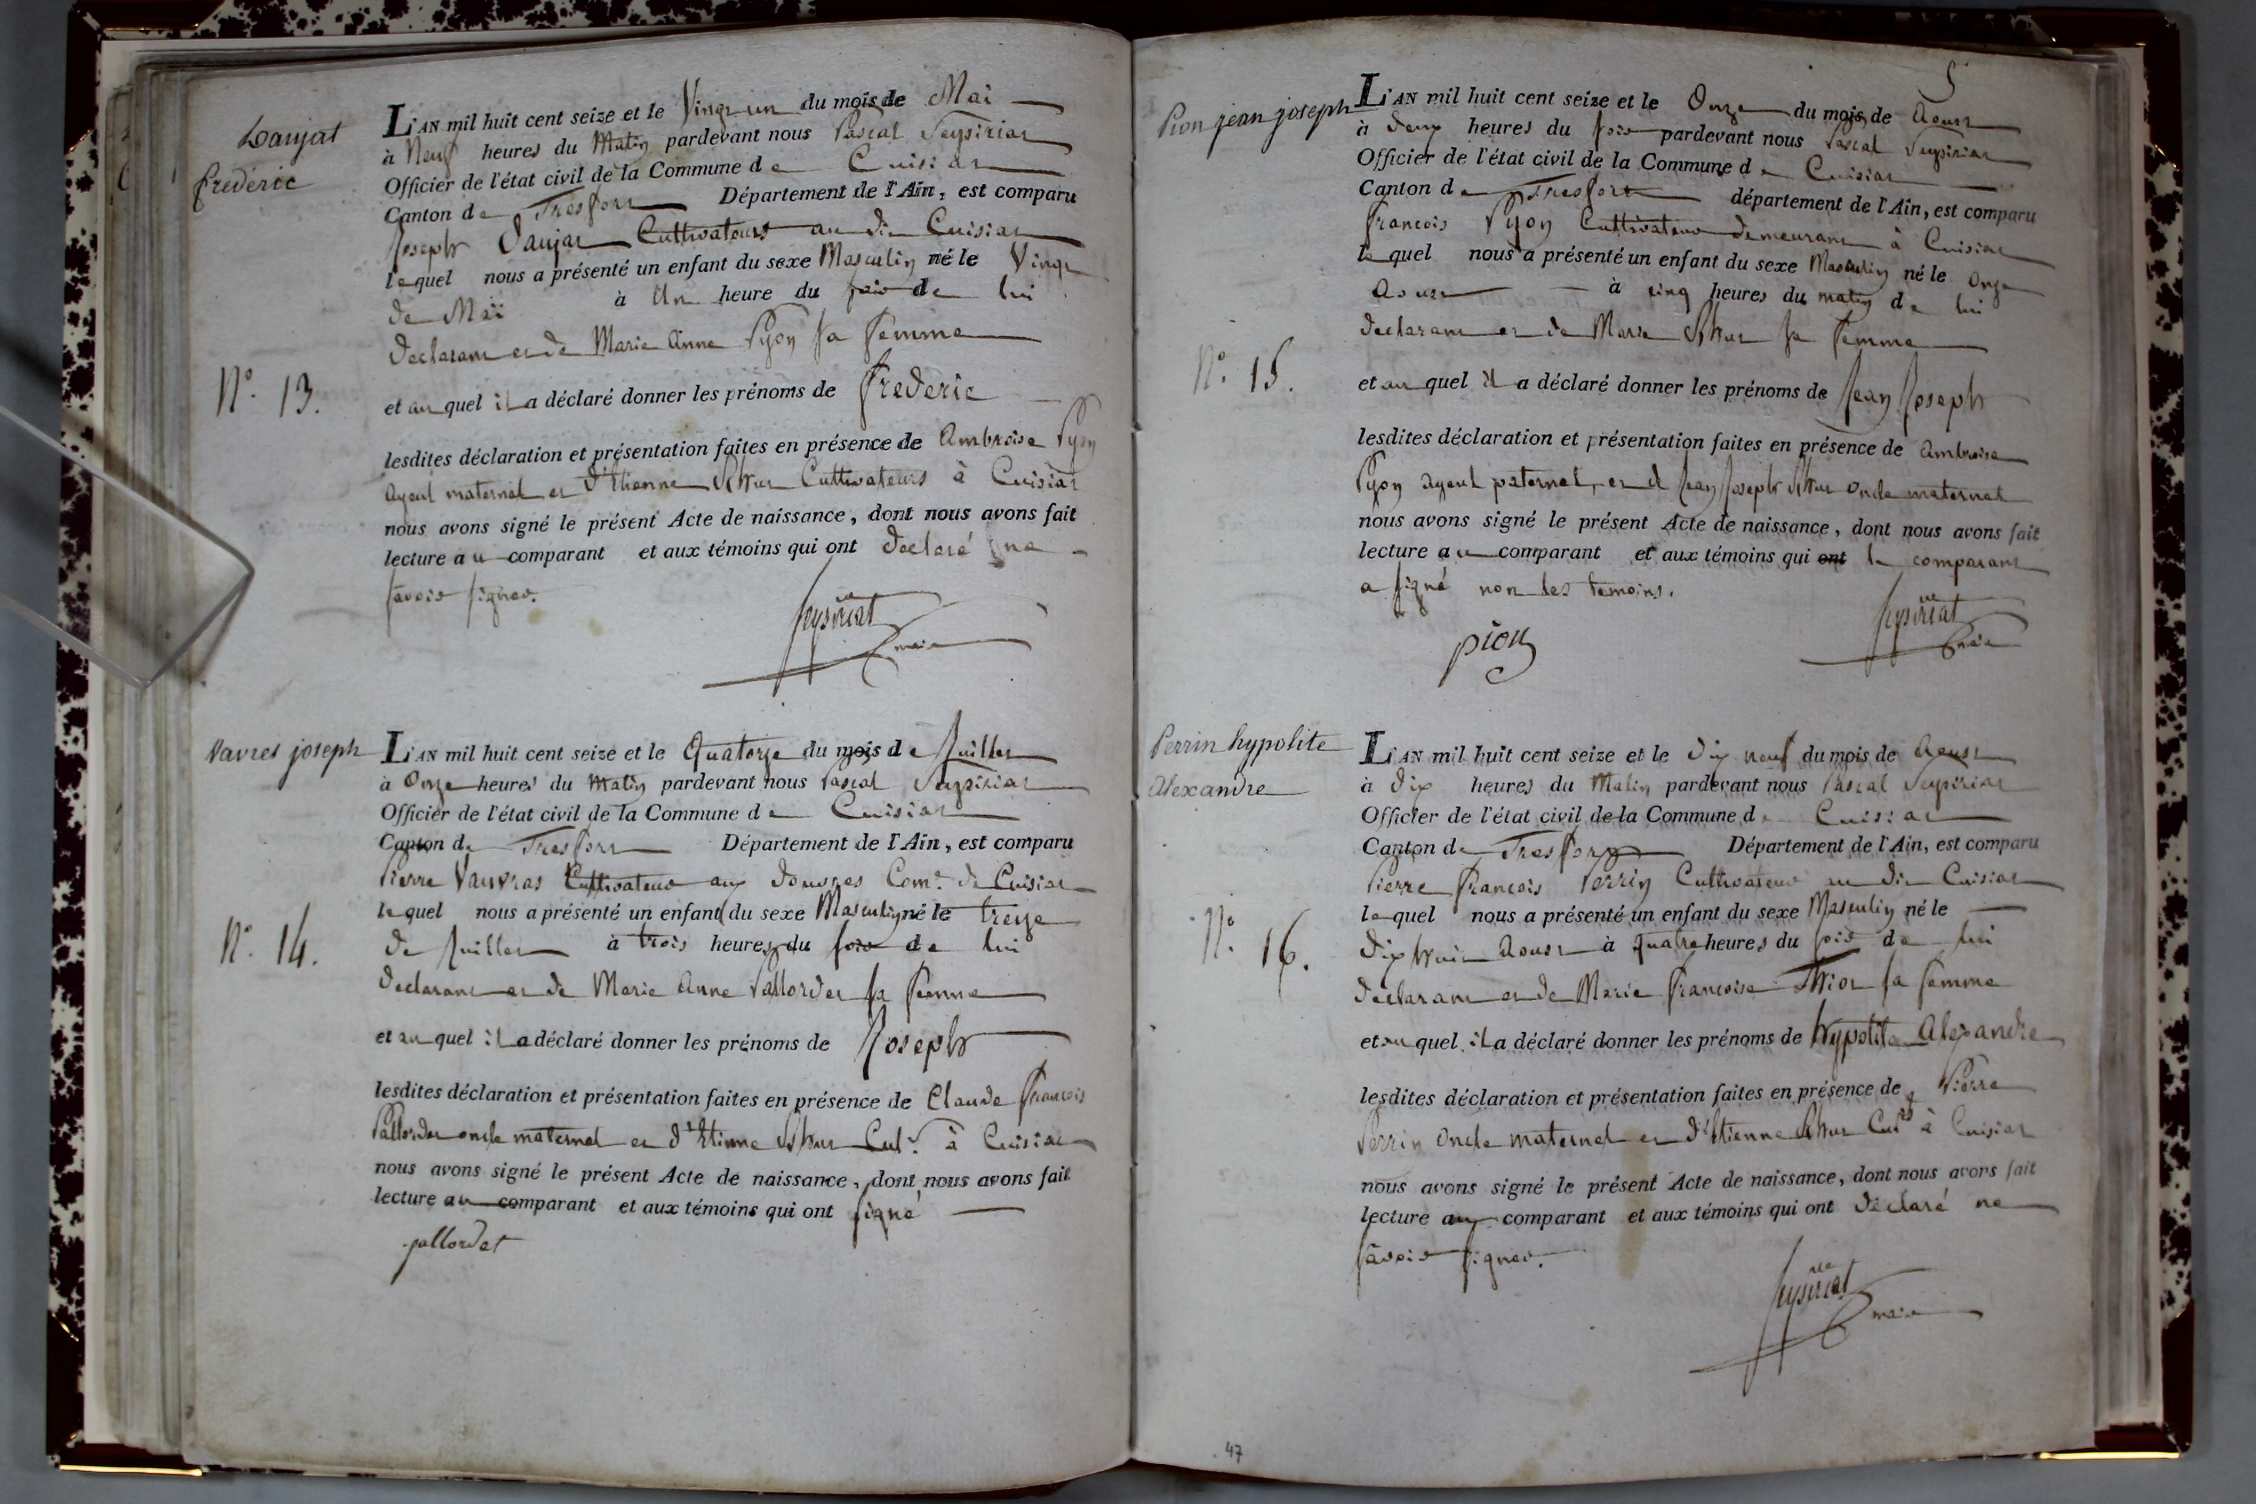 Daujat
frederic
L'AN mil huit cent seize et le Vingt un du mois de Mai
à Neuf heures du Matin pardevant nous Pascal Seysiriat
Officier de l'état civil de la Commune de Cuisiat
Canton de Tresfort Département de l'Ain, est comparu
Joseph Daujat Cultivateurs au dit Cuisiat
lequel nous a présenté un enfant du sexe Masculin né le Vingt
de Mai à Un heure du soir de lui
declarant et de Marie Anne Pyon sa femme
N.º 13.
et au quel il a déclaré donner les prénoms de frederic
lesdites déclaration et présentation faites en présence de Ambroise Pyon
ayeul maternel et d'Etienne Cultivateurs à Cuisiat
nous avons signé le présent Acte de naissance, dont nous avons fait
lecture au comparant et aux témoins qui ont declaré ne
savoir signer.
Seysiriat
maire
Vavres joseph
L'AN mil huit cent seize et le Quatorze du mois de Juillet
à Onze heures du Matin pardevant nous Pascal Seysiriat
Officier de l'état civil de la Commune de Cuisiat
Canton de Tresfort Département de l'Ain, est comparu
Pierre Vauvras Cultivateur aux Com.e de Cuisiat
lequel nous a présenté un enfant du sexe Masculin né le treize
de Juillet à trois heures du soir de lui
N.º 14.
declarant et de Marie Anne Pallordet sa femme
et au quel il a déclaré donner les prénoms de Joseph
lesdites déclaration et présentation faites en présence de Claude francois
Pallordet oncle maternel et d'Etienne Cul.r à Cuisiat
nous avons signé le présent Acte de naissance, dont nous avons fait
lecture au comparant et aux témoins qui ont signé
pallordet
5
Pion jean joseph
L'AN mil huit cent seize et le Onze du mois de Aoust
à deux heures du soir pardevant nous Pascal Seysiriat
Officier de l'état civil de la Commune de Cuisiat
Canton de Tresfort département de l'Ain, est comparu
francois Pyon Cultivateur demeurant à Cuisiat
lequel nous a présenté un enfant du sexe Masculin né le Onze
Aoust à cinq heures du matin de lui
declarant et de Marie sa femme
N.º 15.
et au quel il a déclaré donner les prénoms de Jean Joseph
lesdites déclaration et présentation faites en présence de Ambroise
Pyon ayeul paternel, et d Jean Joseph oncle maternel
nous avons signé le présent Acte de naissance, dont nous avons fait
lecture au comparant et aux témoins qui ont le comparant
a signé non les temoins.
Seysiriat
maire
pion
Perrin hypolite
Alexandre
L'AN mil huit cent seize et le Dix neuf du mois de Aoust
à dix heures du Matin pardevant nous Pascal Seysiriat
Officier de l'état civil de la Commune de Cuisiat
Canton de Tresfort Département de l'Ain, est comparu
Pierre francois Perrin Cultivateur au dit Cuisiat
lequel nous a présenté un enfant du sexe Masculin né le
N.º 16.
Dix huit Aoust à quatre heures du soir de lui
declarant et de Marie francoise sa femme
et au quel il a déclaré donner les prénoms de hypolite Alexandre
lesdites déclaration et présentation faites en présence de Pierre
Perrin Oncle maternel et d'Etienne à Cuisiat
nous avons signé le présent Acte de naissance, dont nous avons fait
lecture au comparant et aux témoins qui ont déclaré ne
savoir signer.
Seysiriat
maire
47